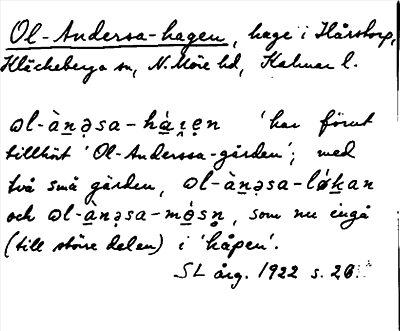 Ol-Andersa-hagen, hage i Hårstorp,
Kläckeberga sn, N. Möre hd, Kalmar l.
ɷl-àn̠ə̣sa-há̠ɩ̯ẹn 'har förut
tillhört 'Ol-Anderssa-gården'; med
två små gärden, ɷl-àn̠ə̣sa-lǿk̠an
och ɷl-àn̠ə̣sa-mɷ́sn̥, som nu ingå
(till större delen) i 'håpen'.
SL årg. 1922 s. 26